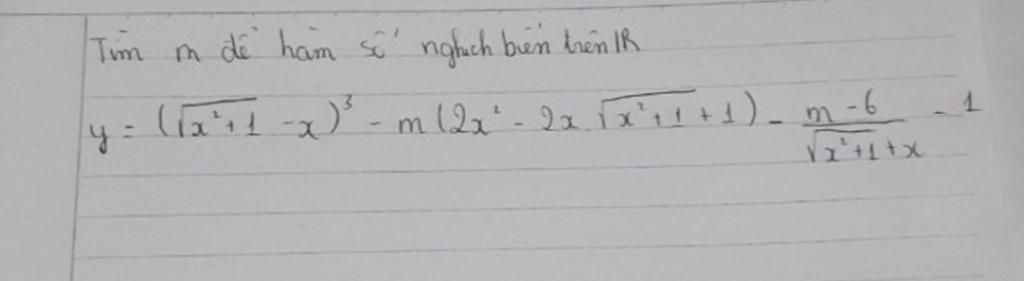 Tìm m để hàm số nghịch biến trên IR
y = (√(x²+1) - x)³ - m(2x² - 2x.√(x²+1) + 1) - (m-6)/(√(x²+1)+x) - 1